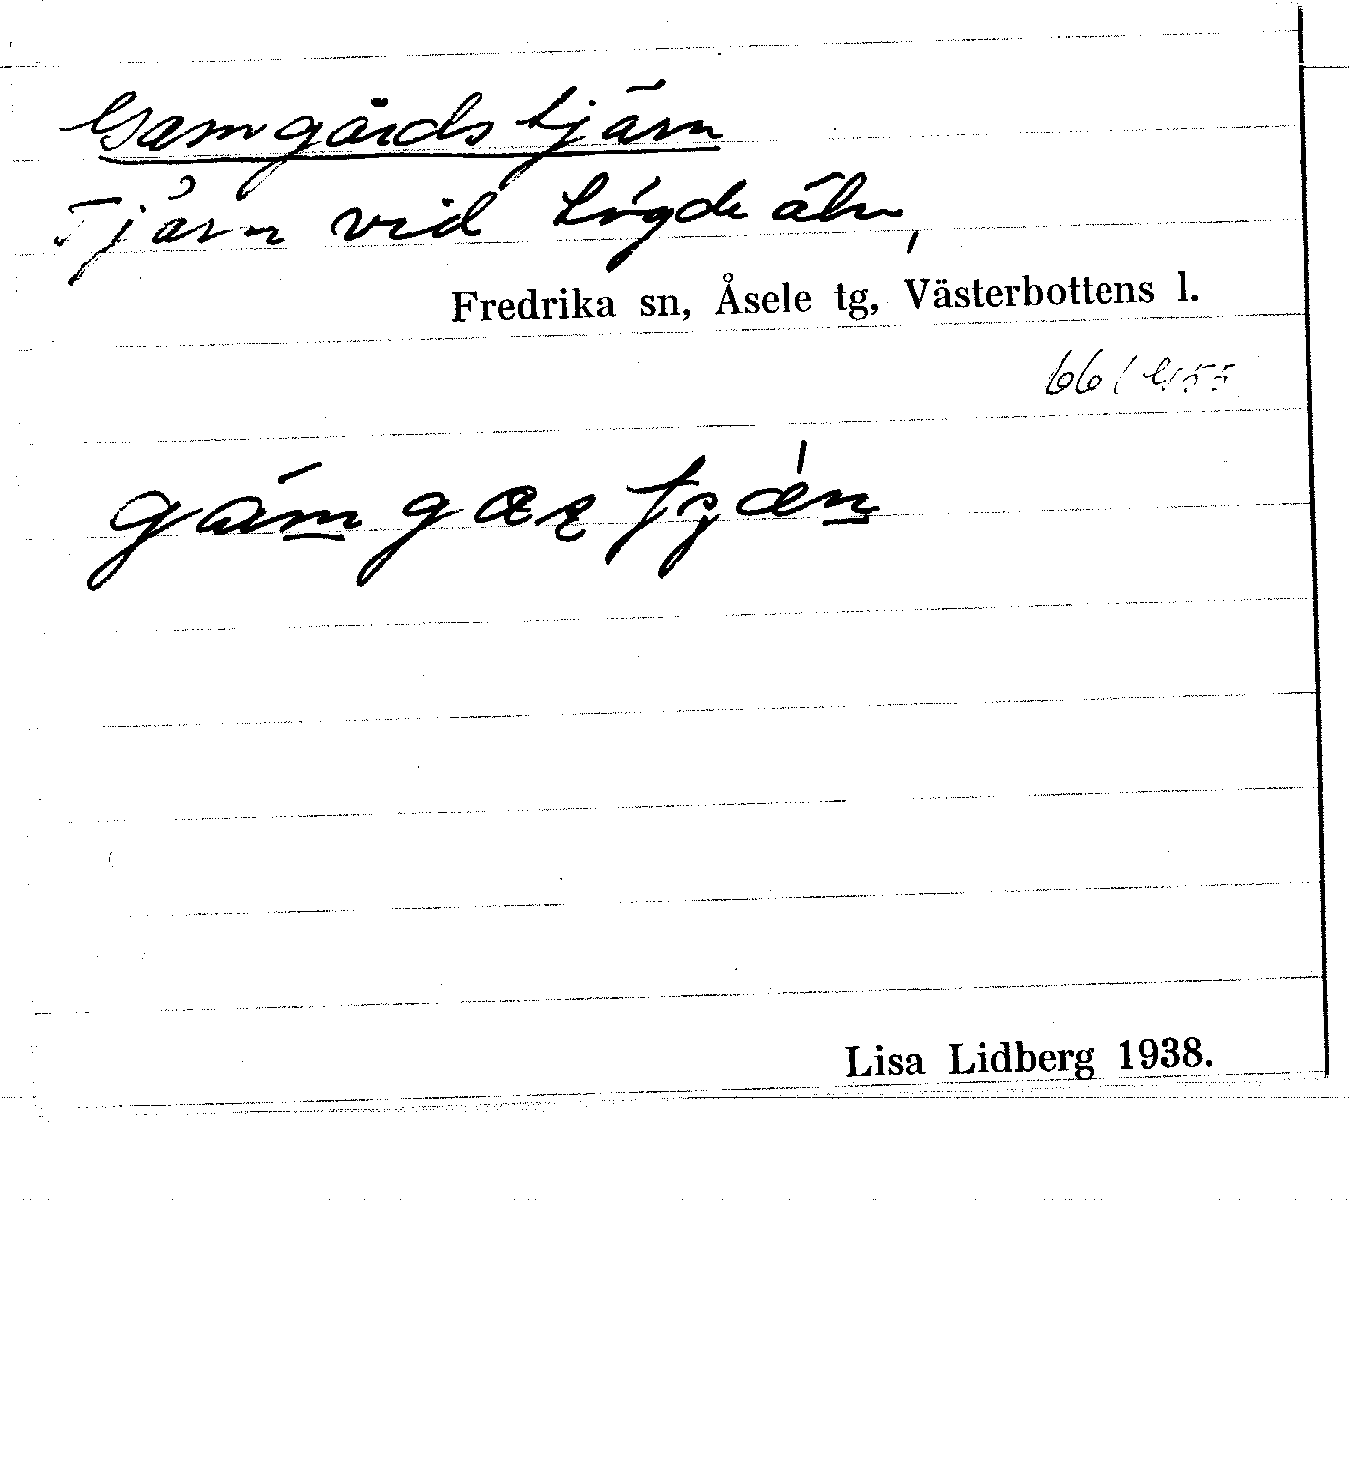 Gamgårdstjärn
Tjärn vid Lögde älv,
Fredrika sn, Åsele tg, Västerbottens l.
Lisa Lidberg 1938.